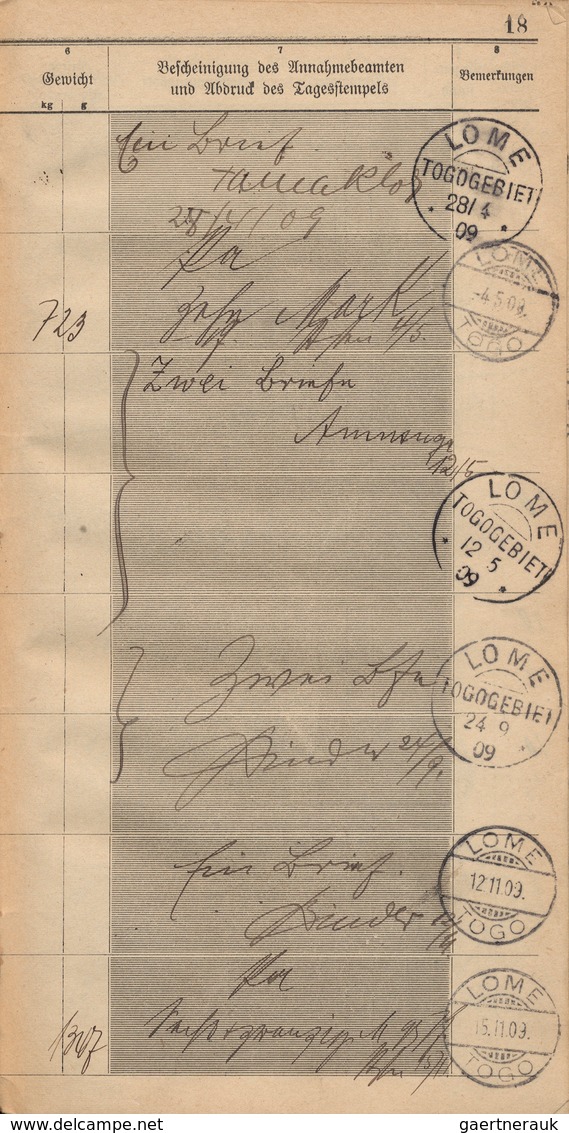 18
6 7 8
Gewicht
Bescheinigung des Annahmebeamten
und Abdruck des Tagesstempels
Bemerkungen
kg g
Ein Brief
28/4/09
LOME
TOGOGEBIET
28/4
09
Pa
723
Zehn Mark
4/5.
LOME
-4.5.09.
TOGO
Zwei Briefe
12/5
LOME
TOGOGEBIET
12 5
09
Zwei Bfe
24/9.
LOME
TOGOGEBIET
24 9
09
Ein Brief.
LOME
12.11.09.
TOGO
Pa
LOME
15.11.09.
TOGO
gaertnerauk